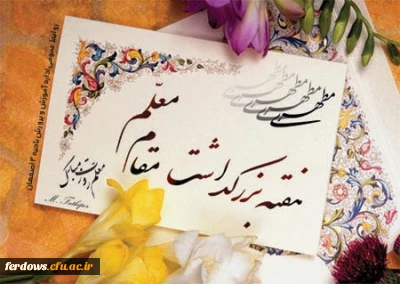 روابط عمومی اداره آموزش و پرورش ناحیه ۳ اصفهان
مطهری
مطهری
مطهری
مطهری
هفته بزرگداشت
مقام
معلّم
معلم روزت مبارک
ferdows.cfu.ac.ir